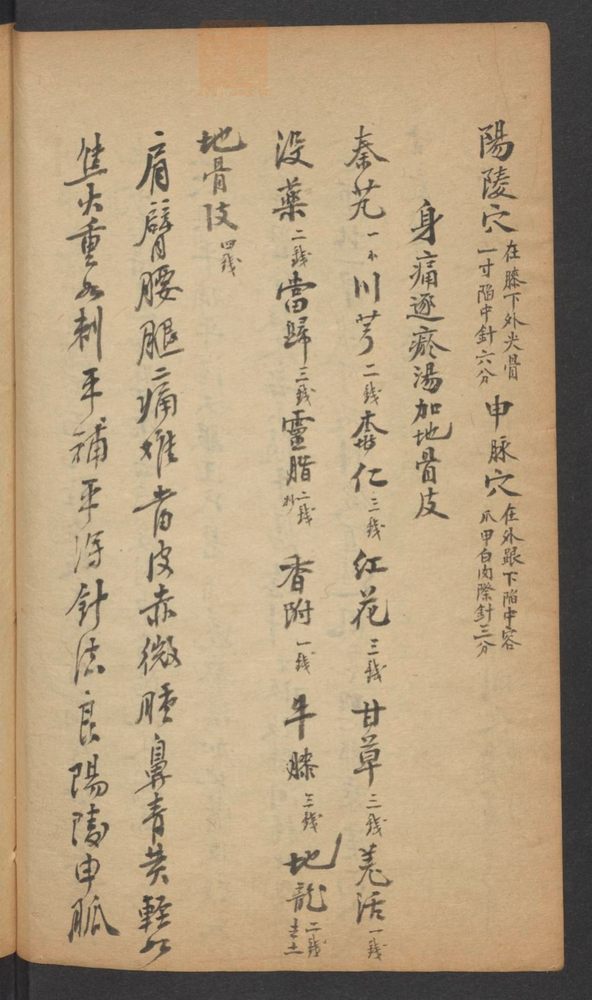 陽陵穴 在膝下外尖骨一寸陷中針六分 申脉穴 在外踝下陷中容爪甲白肉際針三分
身痛逐瘀湯加地骨皮
秦艽一錢 川芎二錢 桃仁三錢 紅花三錢 甘草三錢 羌活一錢
没藥二錢 當歸三錢 靈脂二錢炒 香附一錢 牛膝三錢 地龍二錢去土
地骨皮四錢
肩臂腰腿痛难當皮赤微腫鼻青黄輕如
焦火重如刺平補平瀉針法良陽陵申脈